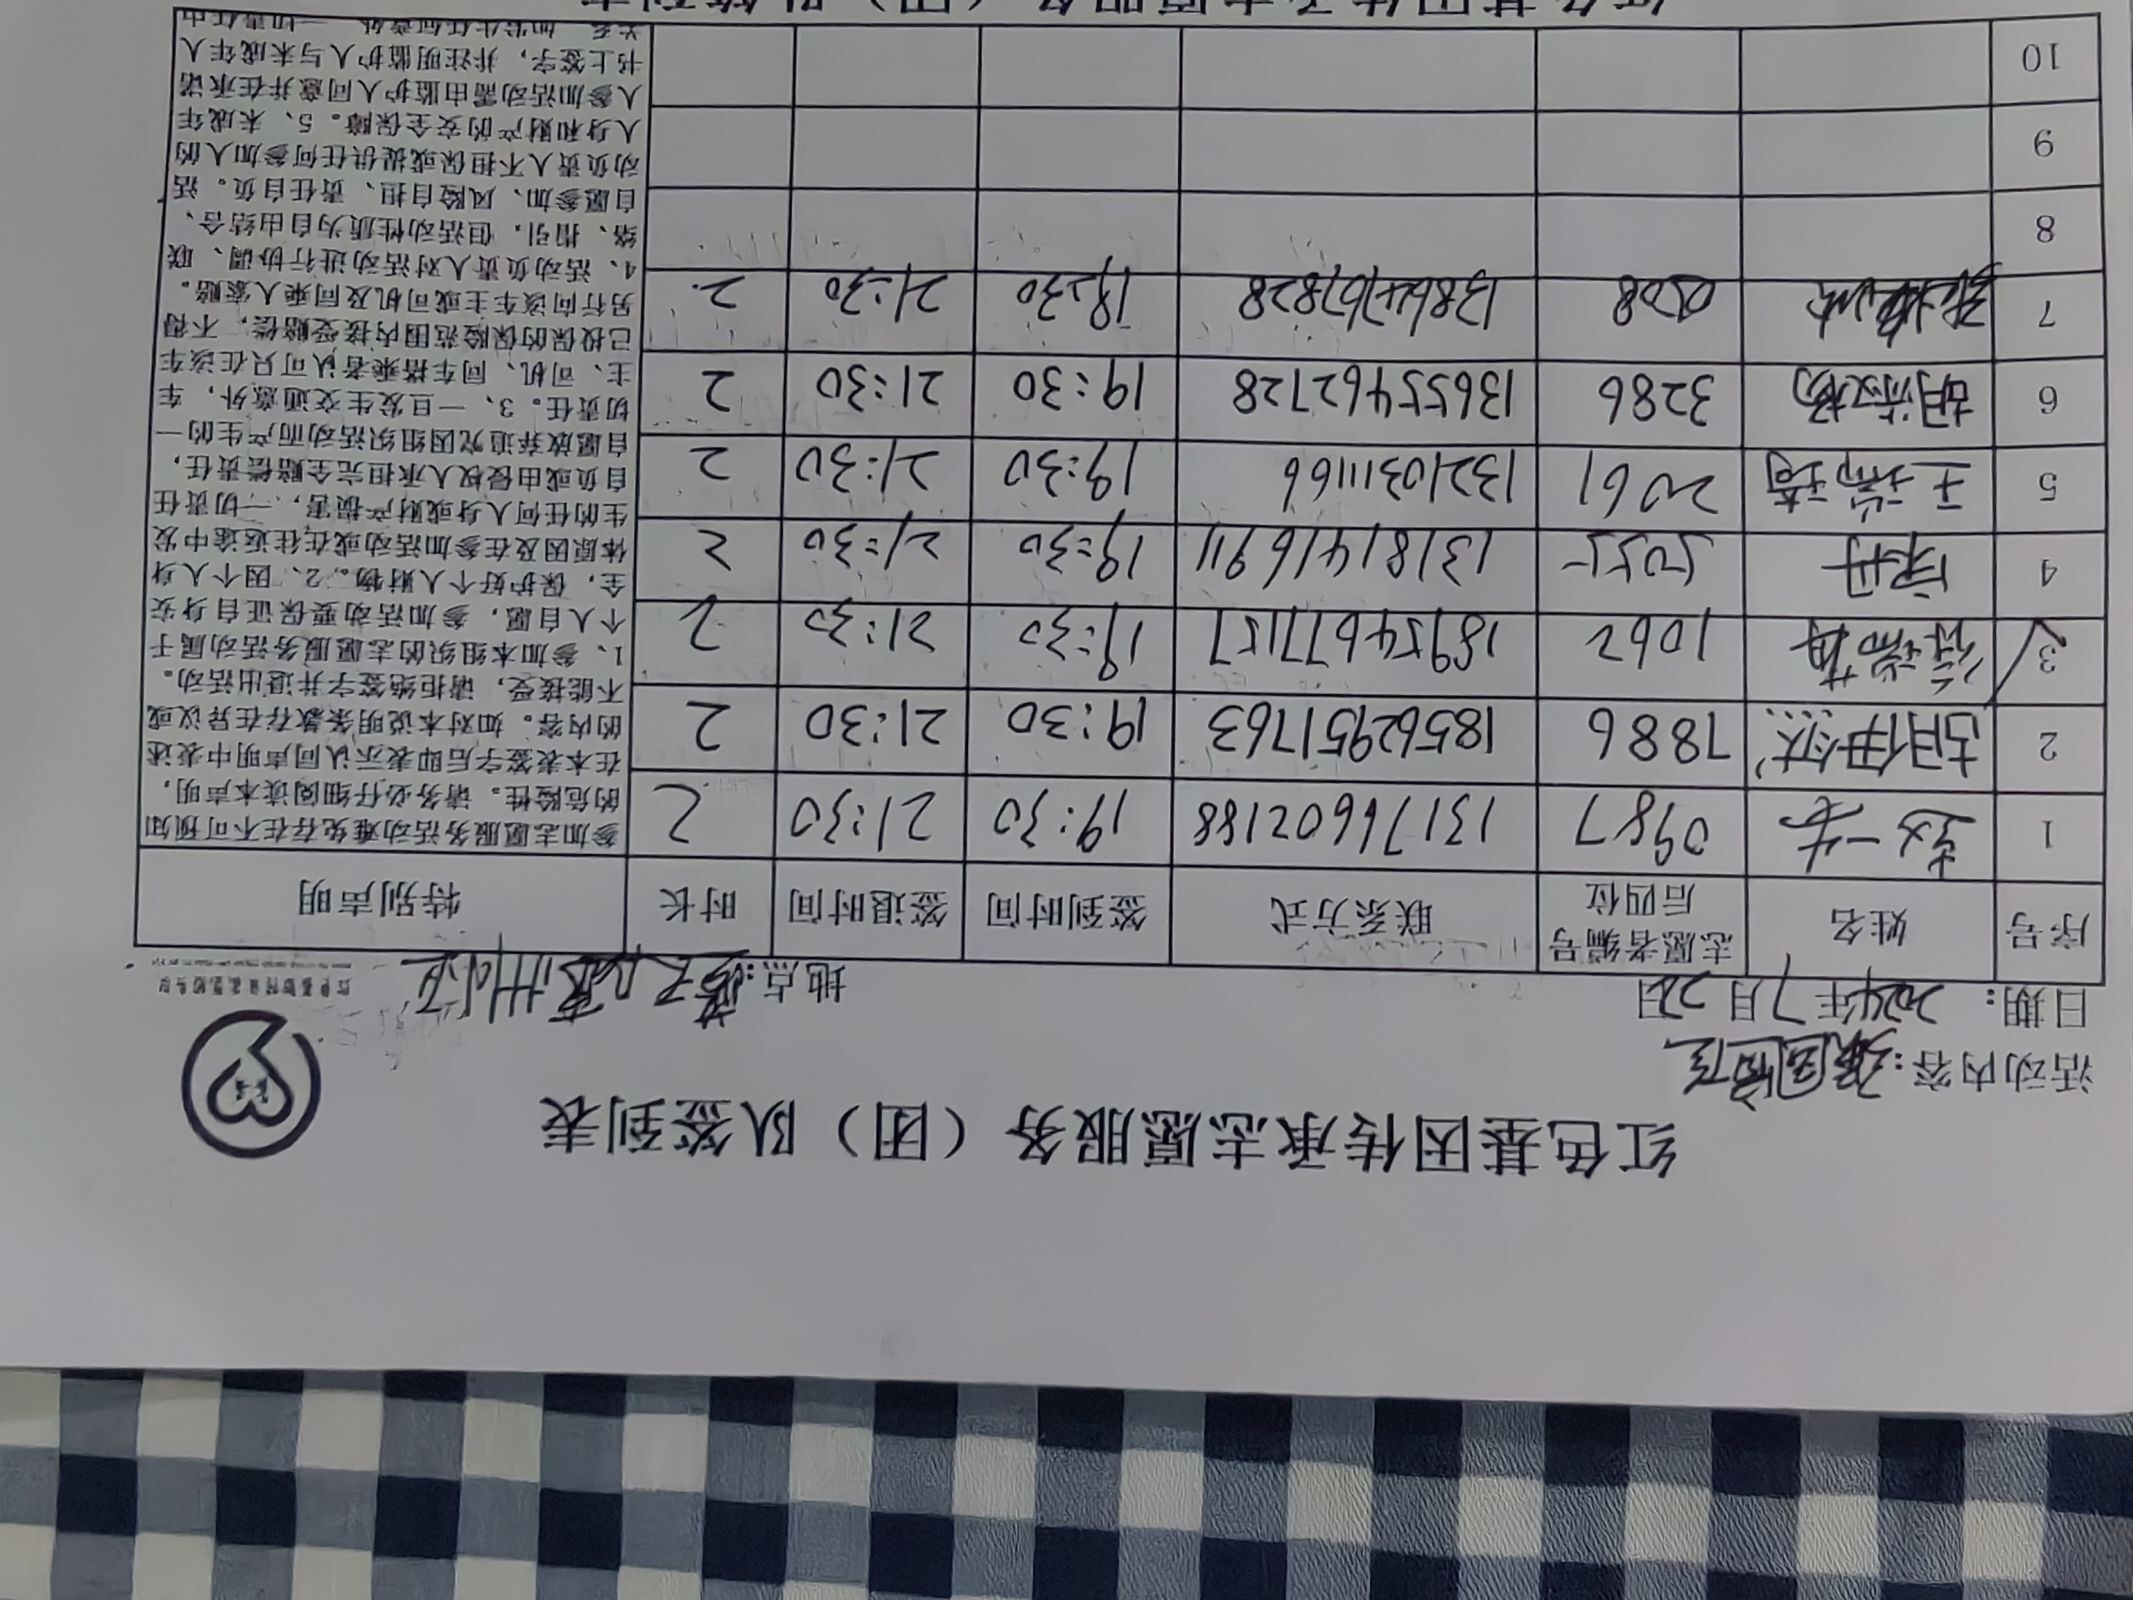 红色基因传承志愿服务（团）队签到表
活动内容：
日期：2024年7月22日 地点：
序号 姓名 志愿者编号后四位 联系方式 签到时间 签退时间 时长 特别声明
1 0987 13176602188 19:30 21:30 2
2 胡伊 7886 18562951763 19:30 21:30 2
3 1062 18954677157 19:30 21:30 2
4 5055 13181416911 19:30 21:30 2
5 王瑞琦 2061 13210311166 19:30 21:30 2
6 胡淑杨 3286 13655462728 19:30 21:30 2
7 0508 21:30 2
8
9
10
参加志愿服务活动难免存在不可预知
的危险性。请务必仔细阅读本声明，
在本表签字后即表示认同声明中表述
的内容。如对本说明条款存在异议或
不能接受，请拒绝签字并退出活动。
1、参加本组织的志愿服务活动属于
个人自愿，参加活动要保证自身安
全，保护好个人财物。2、因个人身
体原因及在参加活动或在往返途中发
生的任何人身或财产损害，一切责任
自负或由侵权人承担完全赔偿责任，
自愿放弃追究因组织活动而产生的一
切责任。3、一旦发生交通意外，车
主、司机、同车搭乘者认可只在该车
已投保的保险范围内接受赔偿，不得
另行向该车主或司机及同乘人索赔。
4、活动负责人对活动进行协调、联
络、指引，但活动性质为自由结合、
自愿参加、风险自担、责任自负。活
动负责人不担保或提供任何参加人的
人身和财产的安全保障。5、未成年
人参加活动需由监护人同意并在承诺
书上签字，并注明监护人与未成年人
关系，如发生任何意外，一切责任由
红色基因传承志愿服务（团）队签到表